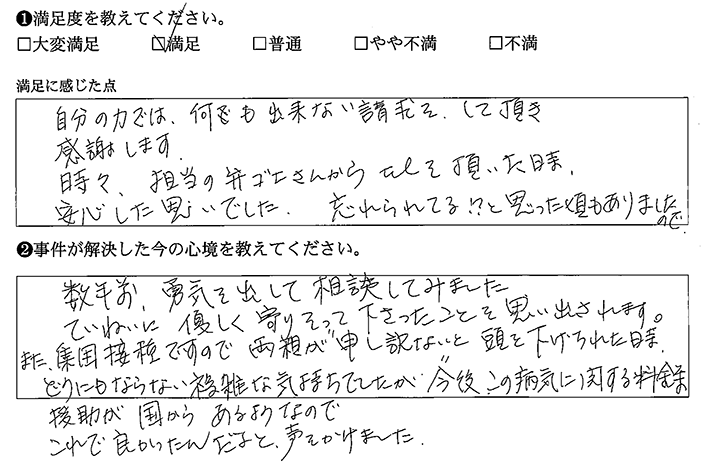 ❶満足度を教えてください。
□大変満足 ☑満足 □普通 □やや不満 □不満
満足に感じた点
自分の力では、何でも出来ない請求を、して頂き
感謝します。
時々、担当の弁ゴ士さんから TELを頂いた時、
安心した思いでした。 忘れられてる!?と思った頃もありました
ので
❷事件が解決した今の心境を教えてください。
数年前、勇気を出して相談してみました
ていねいに 優しく 寄りそって 下さったことを思い出されます。
また、集団接種ですので 両親が"申し訳ないと 頭を下げられた時、
どうにもならない複雑な気持ちでしたが"今後、この病気に関する料金
援助が 国から あるようなので
これで良かったんだよと、声をかけました。